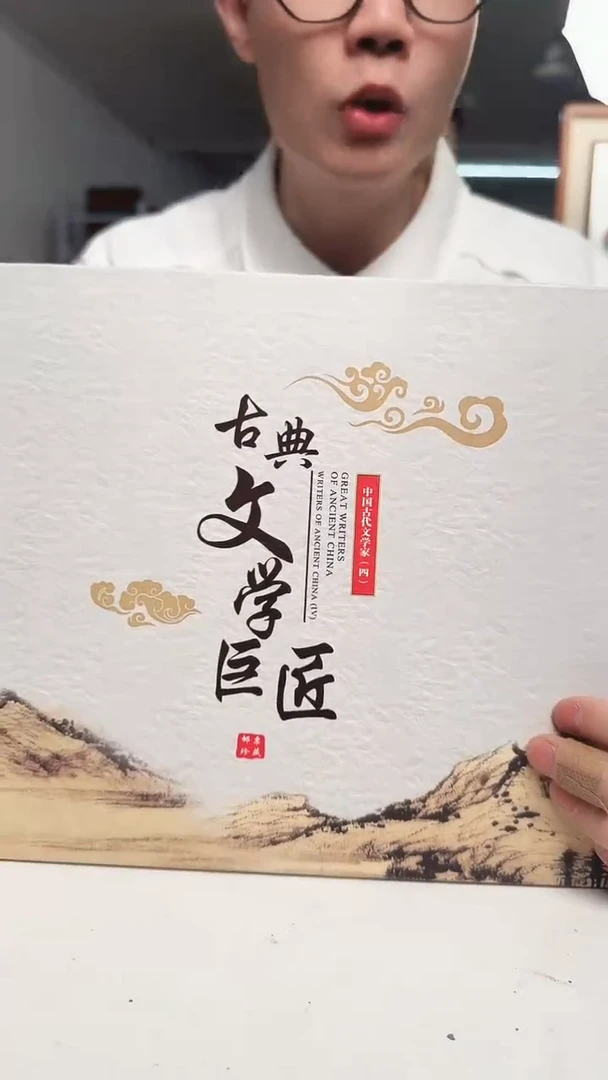 古典文学巨匠
GREAT WRITERS
OF ANCIENT CHINA
WRITERS OF ANCIENT CHINA (IV)
中国古代文学家（四）
邮票
珍藏